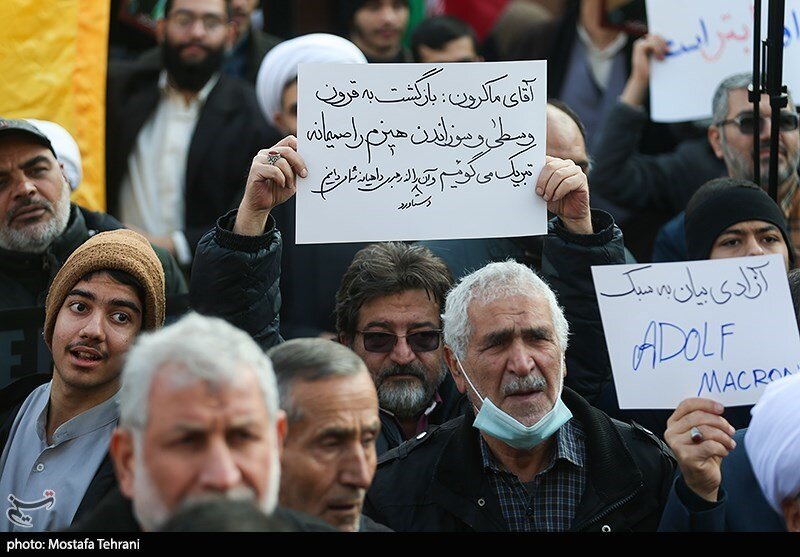 آقای ماکرون: بازگشت به قرون
وسطیٰ و سوزاندن هیزم را صمیمانه
تبریک می‌گوئیم و آن را از رهبری داهیانه شما می‌دانیم
دستاورد
است
آزادی بیان به سبک
ADOLF
MACRON
تسنیم
photo: Mostafa Tehrani